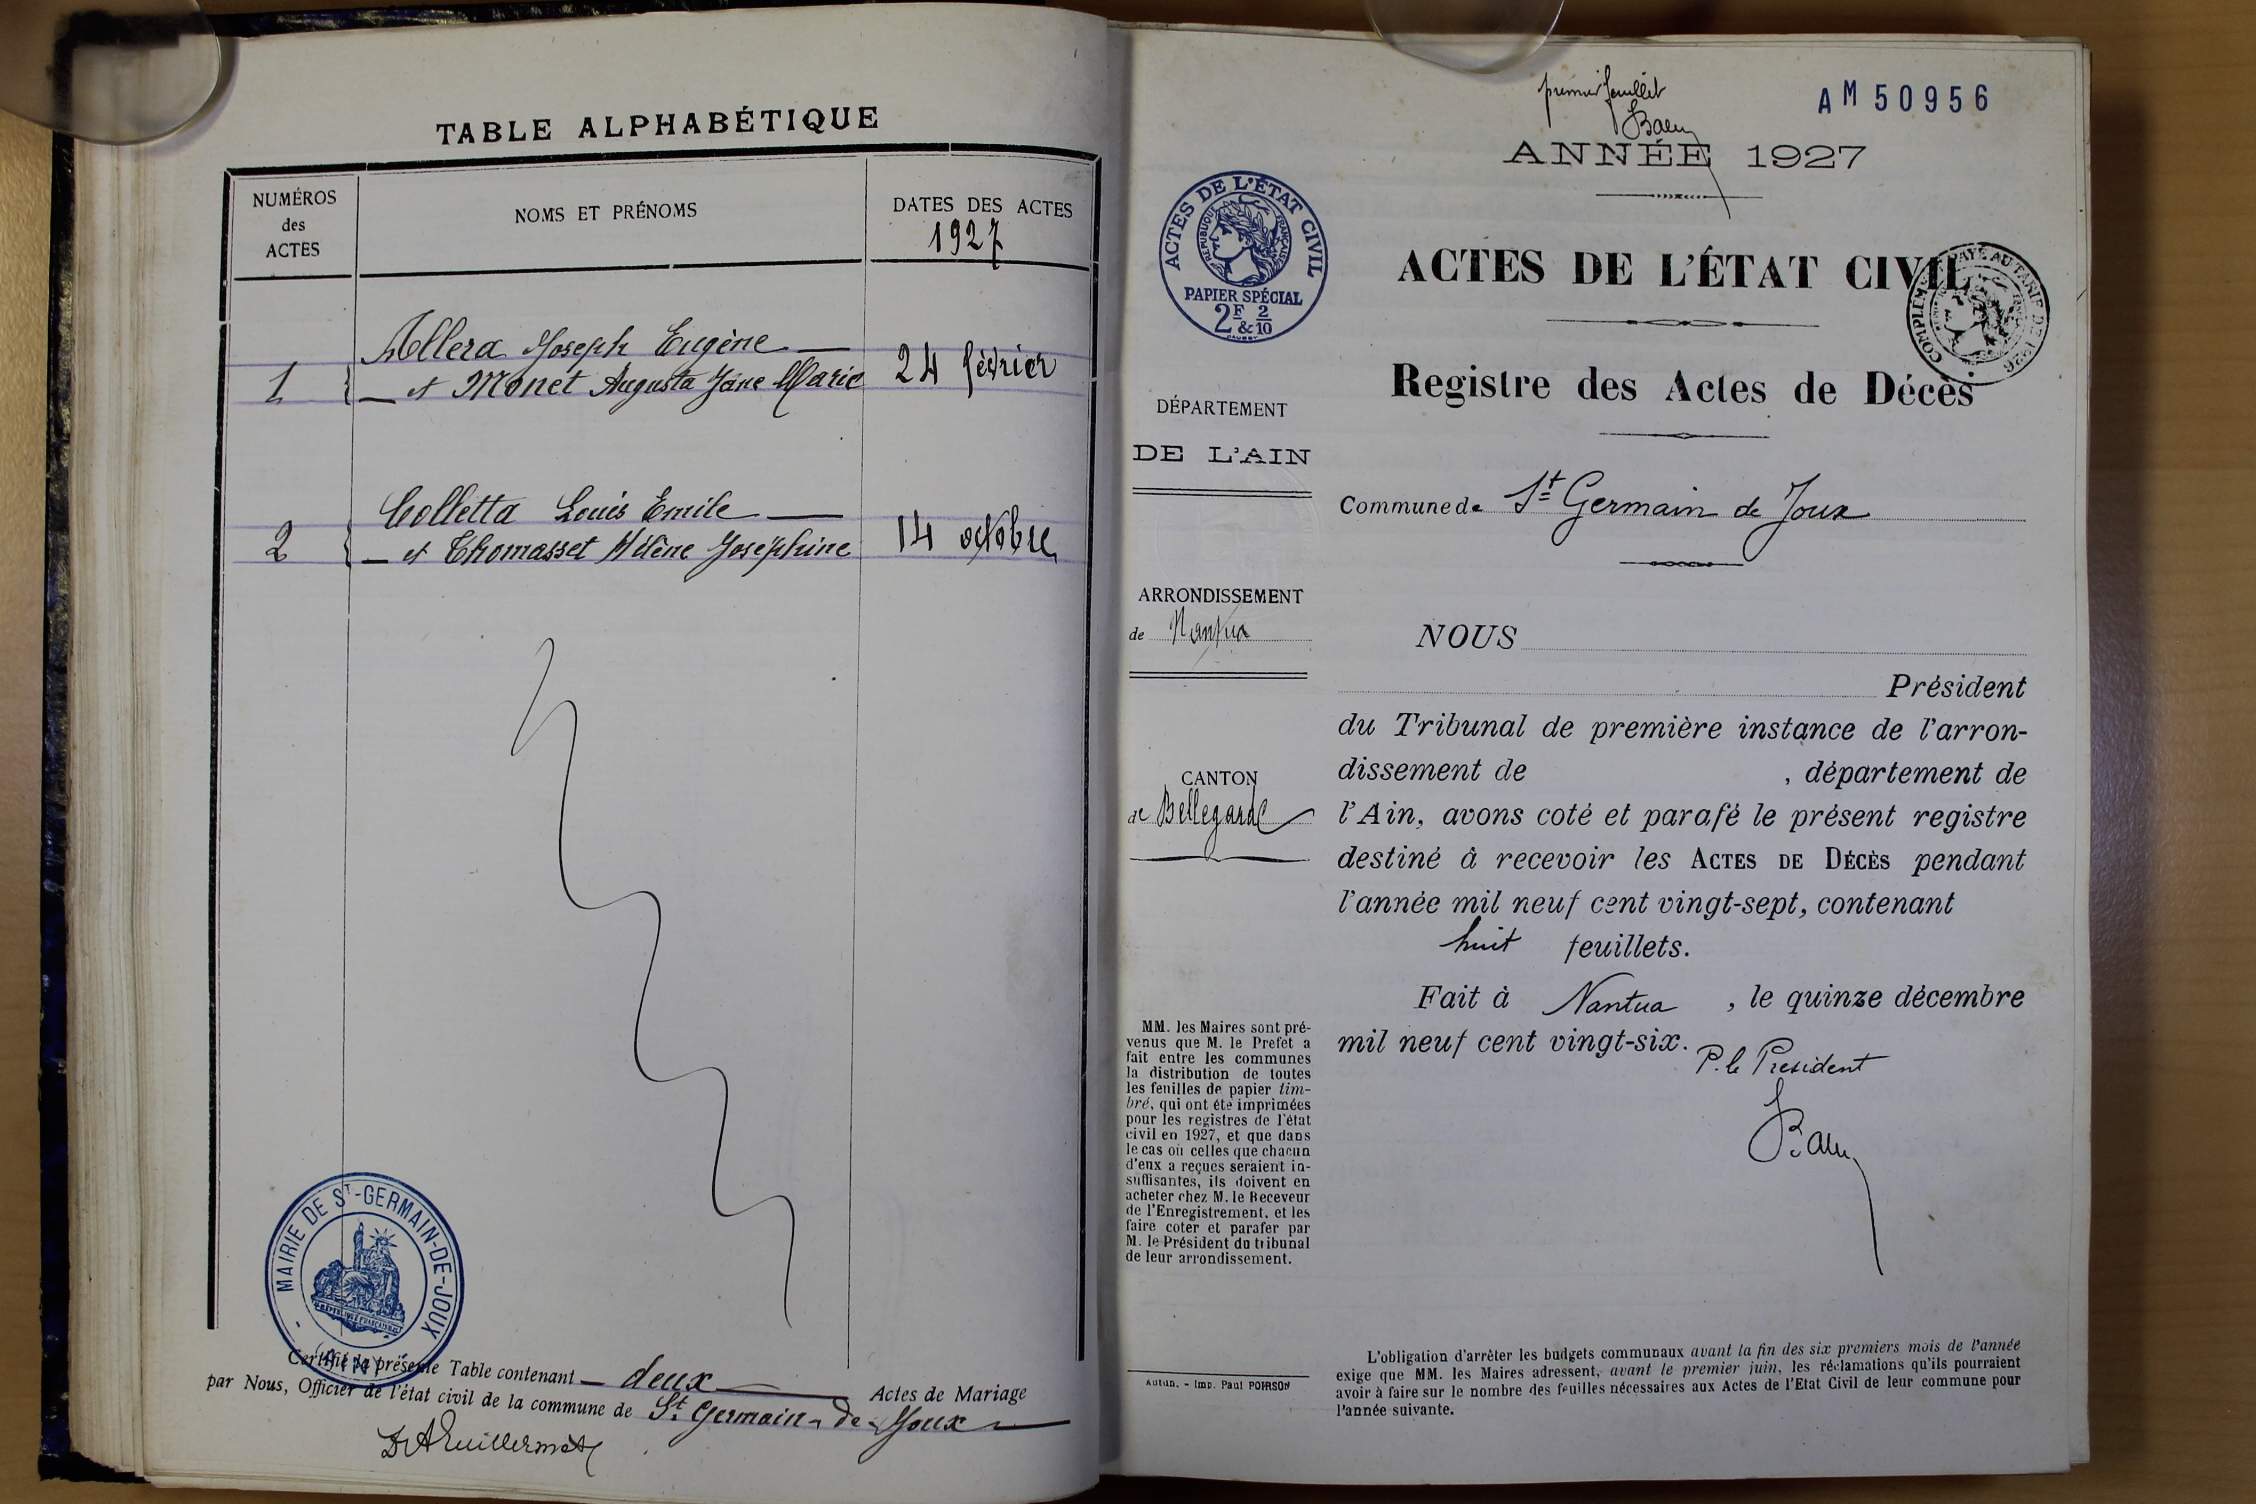 TABLE ALPHABÉTIQUE
NUMÉROS
des
ACTES
NOMS ET PRÉNOMS
DATES DES ACTES
1927
1
Allera Joseph Eugène
et Monet Augusta Jane Marie
24 février
2
Colletta Louis Emile
et Thomasset Hélène Joséphine
14 octobre
MAIRIE DE St-GERMAIN-DE-JOUX
(AIN)
RÉPUBLIQUE FRANÇAISE
Certifié la présente Table contenant deux Actes de Mariage
par Nous, Officier de l'état civil de la commune de St Germain-de-Joux
premier feuillet
AM 50956
ANNÉE 1927
ACTES DE L'ÉTAT CIVIL
RÉPUBLIQUE FRANÇAISE
PAPIER SPÉCIAL
2F & 2/10
ACTES DE L'ÉTAT CIVIL
COMPLÉMENT PAYÉ AU TARIF DE 1926
Registre des Actes de Décès
DÉPARTEMENT
DE L'AIN
Commune de St Germain de Joux
ARRONDISSEMENT
de Nantua
CANTON
de Bellegarde
NOUS
Président
du Tribunal de première instance de l'arron-
dissement de , département de
l'Ain, avons coté et parafé le présent registre
destiné à recevoir les ACTES DE DÉCÈS pendant
l'année mil neuf cent vingt-sept, contenant
huit feuillets.
Fait à Nantua , le quinze décembre
mil neuf cent vingt-six.
P. le Président
MM. les Maires sont pré-
venus que M. le Préfet a
fait entre les communes
la distribution de toutes
les feuilles de papier tim-
bré, qui ont été imprimées
pour les registres de l'état
civil en 1927, et que dans
le cas où celles que chacun
d'eux a reçues seraient in-
suffisantes, ils doivent en
acheter chez M. le Receveur
de l'Enregistrement, et les
faire coter et parafer par
M. le Président du tribunal
de leur arrondissement.
Autun. - Imp. Paul POIRSON
L'obligation d'arrêter les budgets communaux avant la fin des six premiers mois de l'année
exige que MM. les Maires adressent, avant le premier juin, les réclamations qu'ils pourraient
avoir à faire sur le nombre des feuilles nécessaires aux Actes de l'Etat Civil de leur commune pour
l'année suivante.